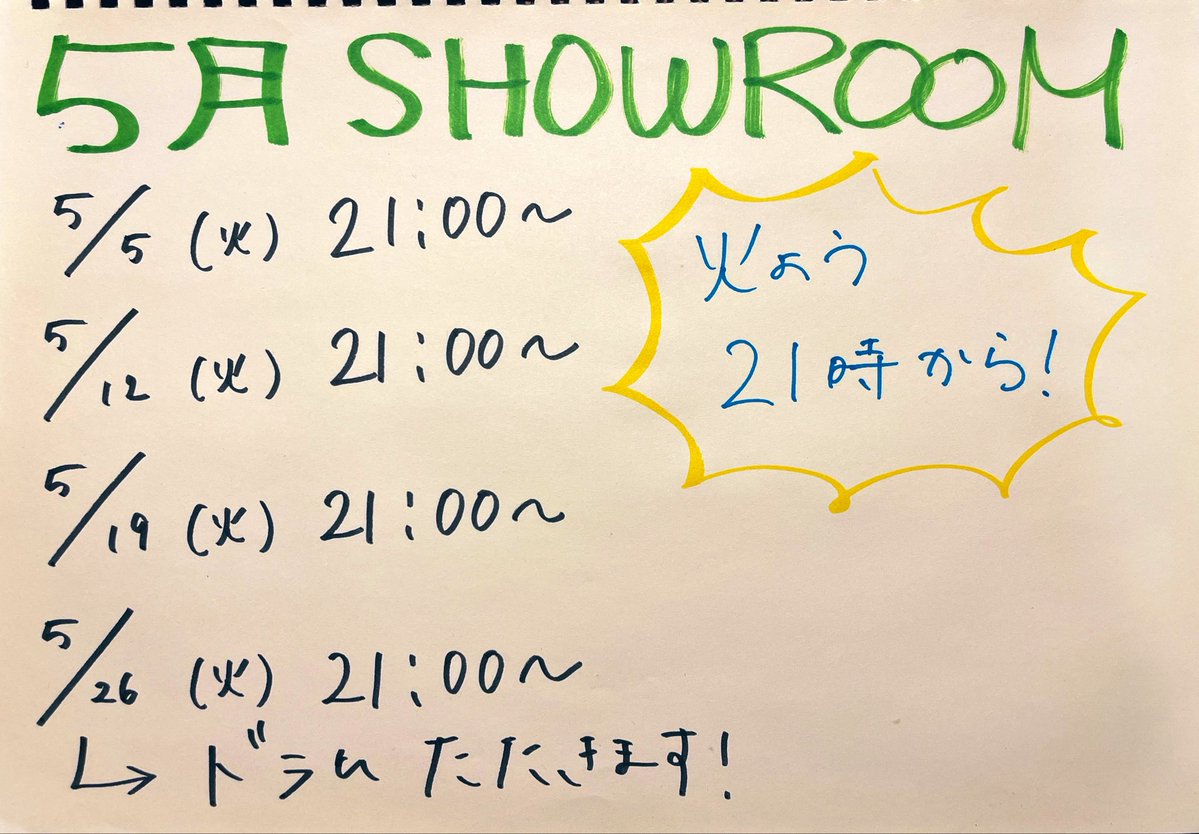 5月 SHOWROOM
5/5 (火) 21:00~
5/12 (火) 21:00~
5/19 (火) 21:00~
5/26 (火) 21:00~
↳ ドラムたたきます!
火よう
21時から!